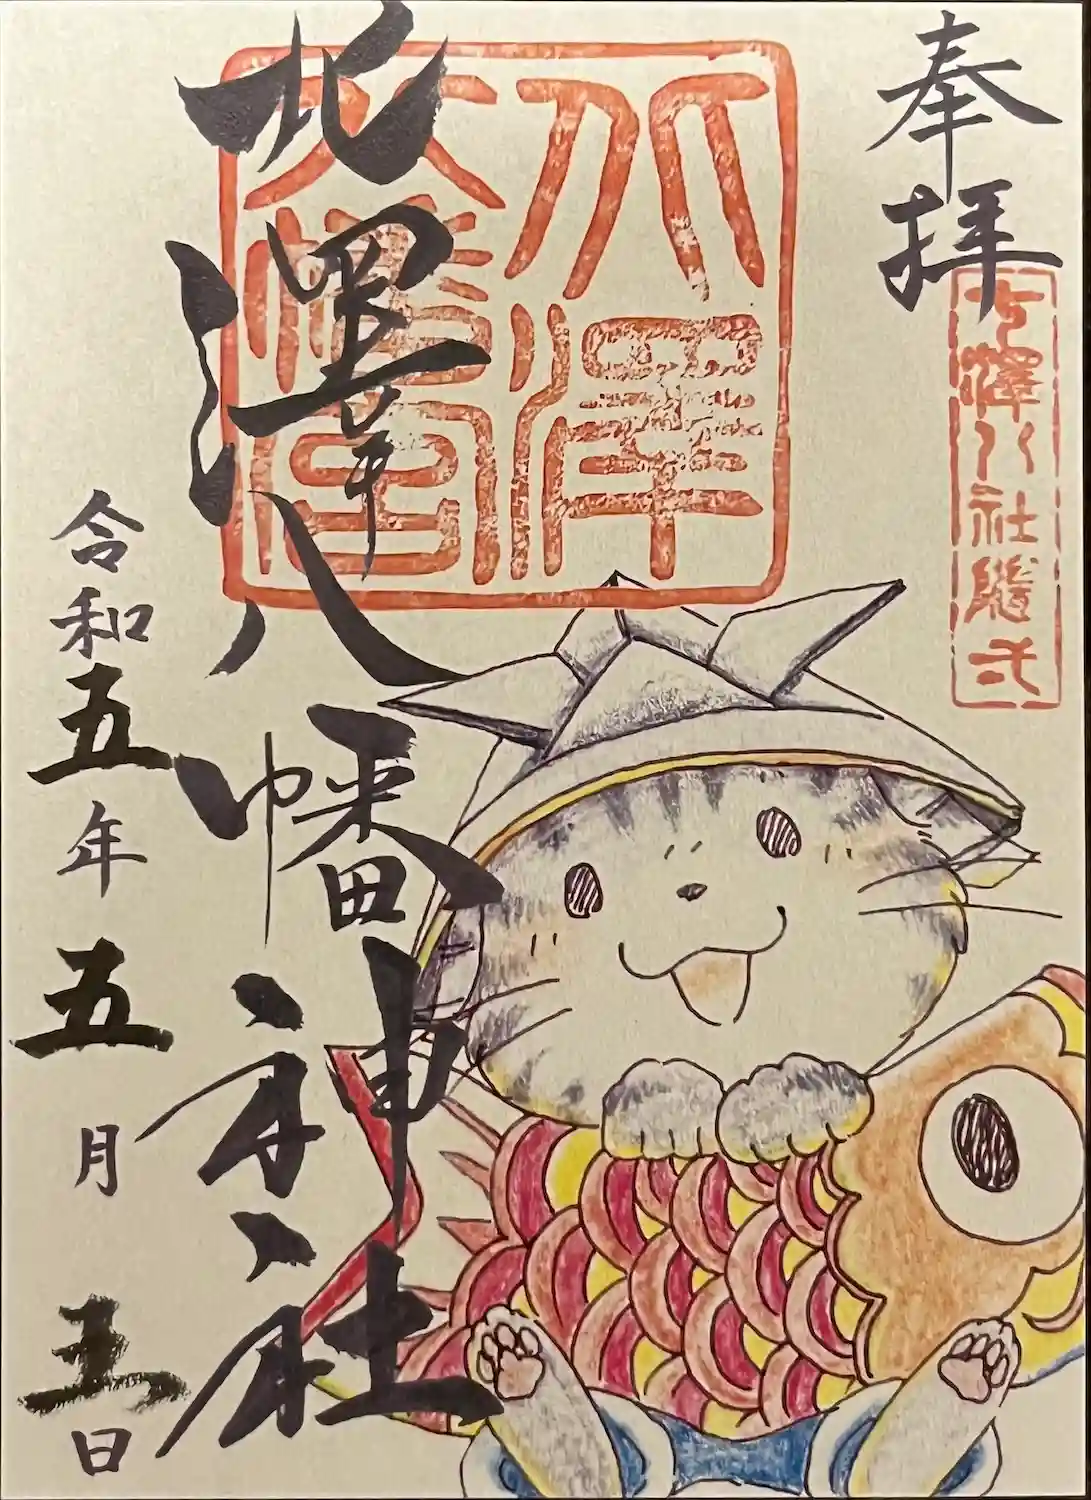 奉拝
七澤八社隨弌
北澤八幡神社
北澤
八幡宮
令和五年五月五日